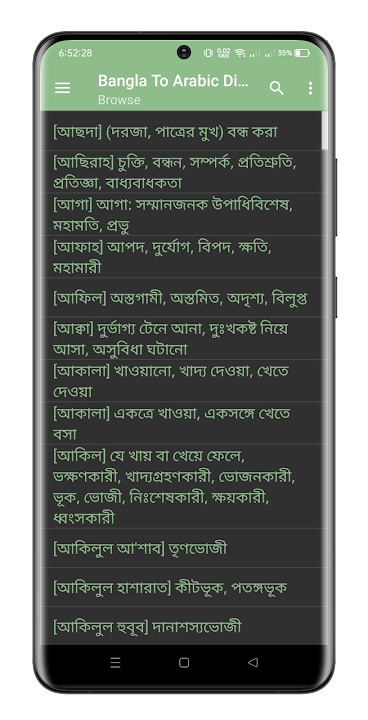 6:52:28
0.02 KB/S
35%
Bangla To Arabic Di...
Browse
[আছদা] (দরজা, পাত্রের মুখ) বন্ধ করা
[আছিরাহ] চুক্তি, বন্ধন, সম্পর্ক, প্রতিশ্রুতি,
প্রতিজ্ঞা, বাধ্যবাধকতা
[আগা] আগা: সম্মানজনক উপাধিবিশেষ,
মহামতি, প্রভু
[আফাহ] আপদ, দুর্যোগ, বিপদ, ক্ষতি,
মহামারী
[আফিল] অস্তগামী, অস্তমিত, অদৃশ্য, বিলুপ্ত
[আক্বা] দুর্ভাগ্য টেনে আনা, দুঃখকষ্ট নিয়ে
আসা, অসুবিধা ঘটানো
[আকালা] খাওয়ানো, খাদ্য দেওয়া, খেতে
দেওয়া
[আকালা] একত্রে খাওয়া, একসঙ্গে খেতে
বসা
[আকিল] যে খায় বা খেয়ে ফেলে,
ভক্ষণকারী, খাদ্যগ্রহণকারী, ভোজনকারী,
ভূক, ভোজী, নিঃশেষকারী, ক্ষয়কারী,
ধ্বংসকারী
[আকিলুল আ'শাব] তৃণভোজী
[আকিলুল হাশারাত] কীটভূক, পতঙ্গভূক
[আকিলুল হুবূব] দানাশস্যভোজী